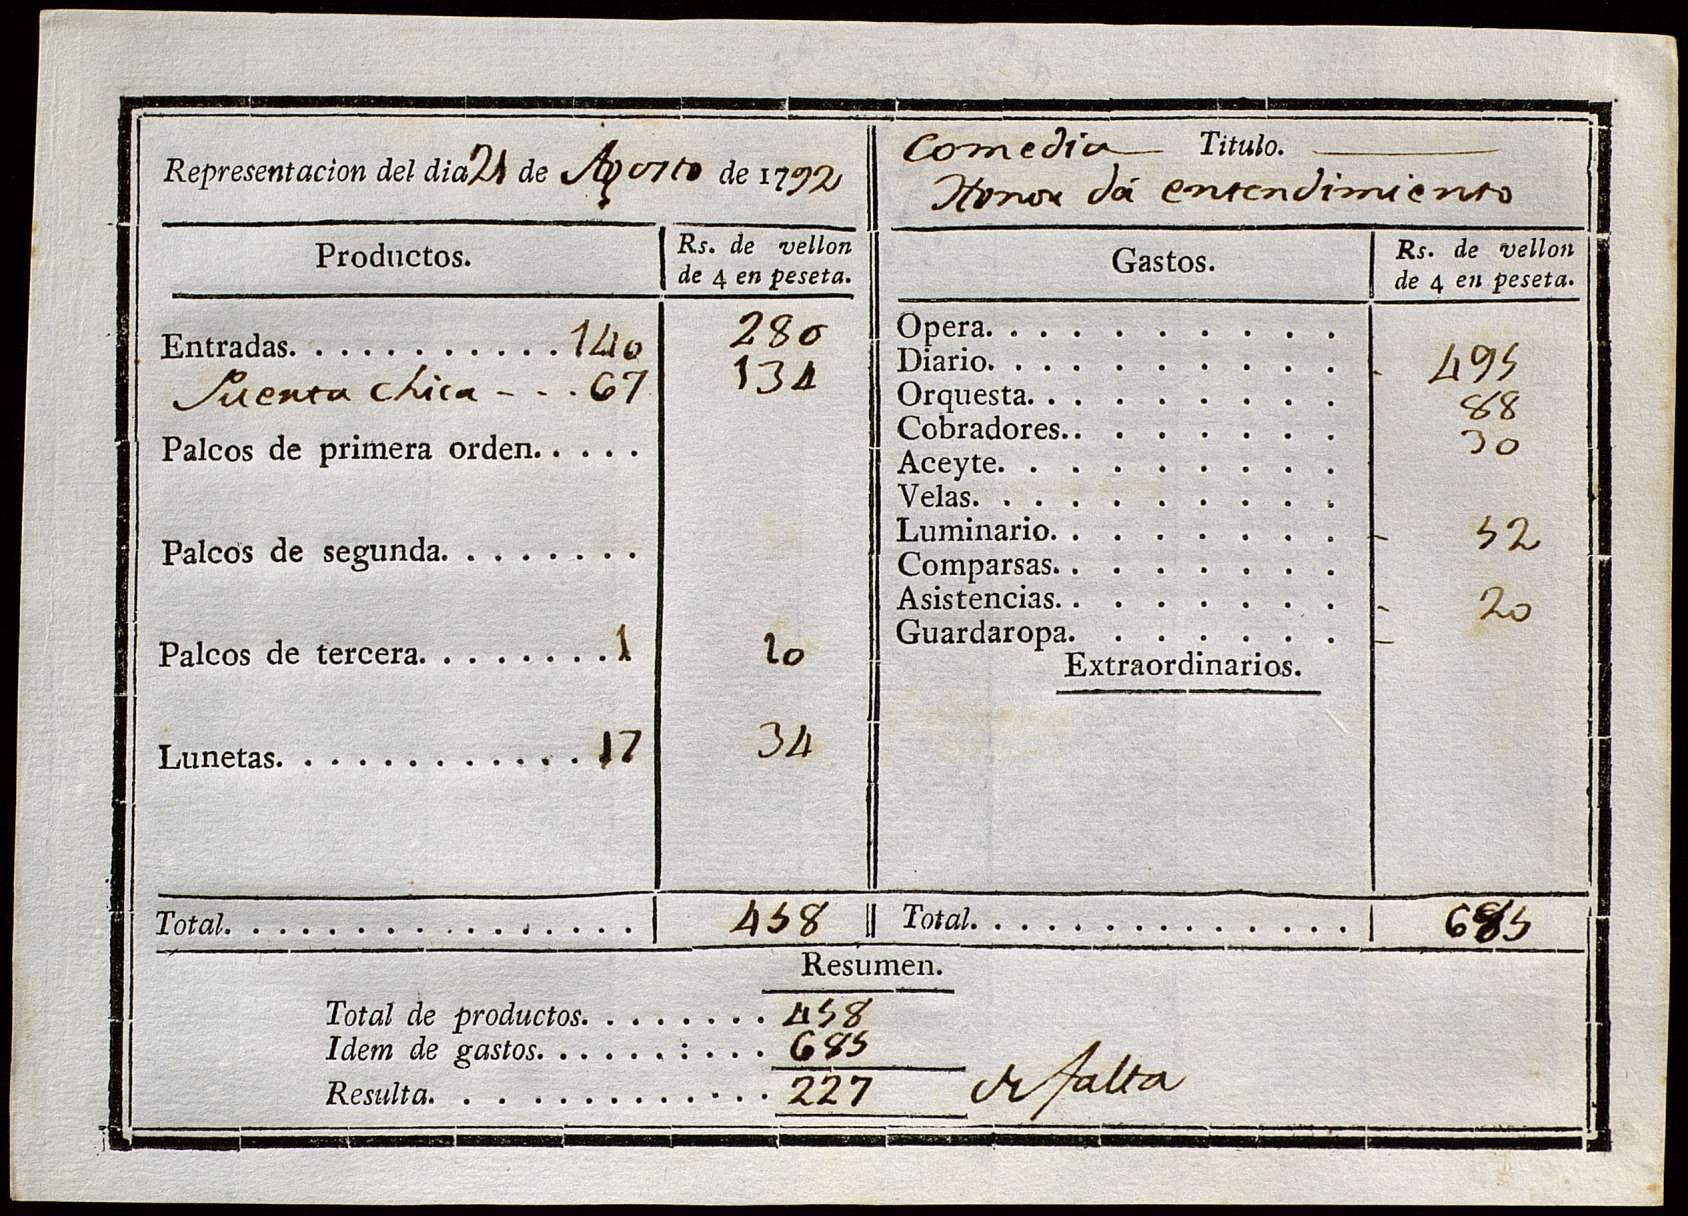 Representacion del dia 21 de Agosto de 1792
Comedia Titulo.
Honor dá entendimiento
Productos.
Rs. de vellon
de 4 en peseta.
Gastos.
Rs. de vellon
de 4 en peseta.
Entradas. . . . . . . . . . . 140 280
Puerta chica - - . 67 134
Palcos de primera orden. . . . .
Palcos de segunda. . . . . . . .
Palcos de tercera. . . . . . . . 1 10
Lunetas. . . . . . . . . . . . . 17 34
Opera. . . . . . . . . .
Diario. . . . . . . . . . 495
Orquesta. . . . . . . . . 88
Cobradores. . . . . . . . 30
Aceyte. . . . . . . . . .
Velas. . . . . . . . . .
Luminario. . . . . . . . 52
Comparsas. . . . . . . .
Asistencias. . . . . . . . 20
Guardaropa. . . . . . .
Extraordinarios.
Total. . . . . . . . . . . . . . . . . 458
Total. . . . . . . . . . . . . . . 685
Resumen.
Total de productos. . . . . . . . 458
Idem de gastos. . . . . . : . . . 685
Resulta. . . . . . . . . . . . . . 227 de falta